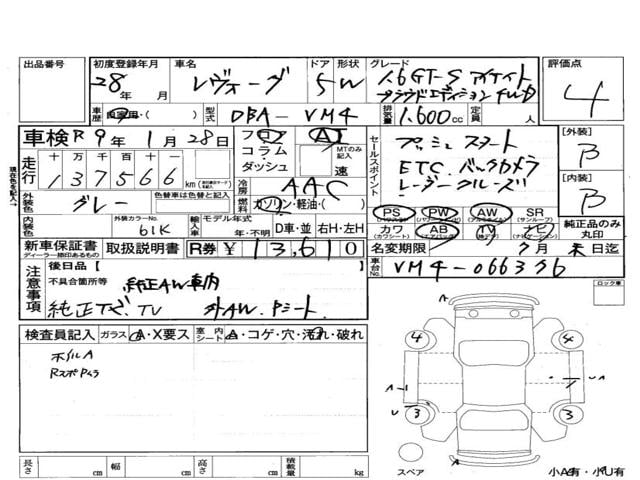 出品番号
初度登録年月 車名 ドア 形状 グレード 評価点
28年 月 レヴォーグ 5 W 1.6GT-S アイサイト
プラウドエディション 4WD
4
車歴 自家用・( ) 型式 DBA-VM4 排気量 1,600cc 定員 人
車検 R9年 1月 28日 フロア コラム・ダッシュ AT MTのみ記入 速
セールスポイント プッシュスタート
ETC、バックカメラ
レーダークルーズ
[外装] B
[内装] B
走行 十 万 千 百 十 一
137566 km
冷房 AAC
外装色 グレー 色替車は色替と記入 燃料 ガソリン・軽油・( )
内装色 外装カラーNo. 61K 輸入車 モデル年式 年・不明 D車・並 右H・左H
PS PW AW SR (サンルーフ)
カワ (カワシート) AB TV ナビ 純正品のみ丸印
新車保証書 取扱説明書 R券 ¥13,610
ディーラー捺印あるもの
名変期限 7月 末日迄
車台No. VM4-066336
ロック車
注意事項 後日品【 】
不具合箇所等 純正AW車内
純正ナビ、TV 外AW、Pミート
検査員記入 ガラス A・X要ス 室内シート A・コゲ・穴・汚れ・破れ
ホイルA
RスポPハラ
A
4 4
A-1 7 UA
U 3 3
A
スペア 小A有・小U有
長さ cm 幅 cm 高さ cm 積載量 kg
現在色を記入→